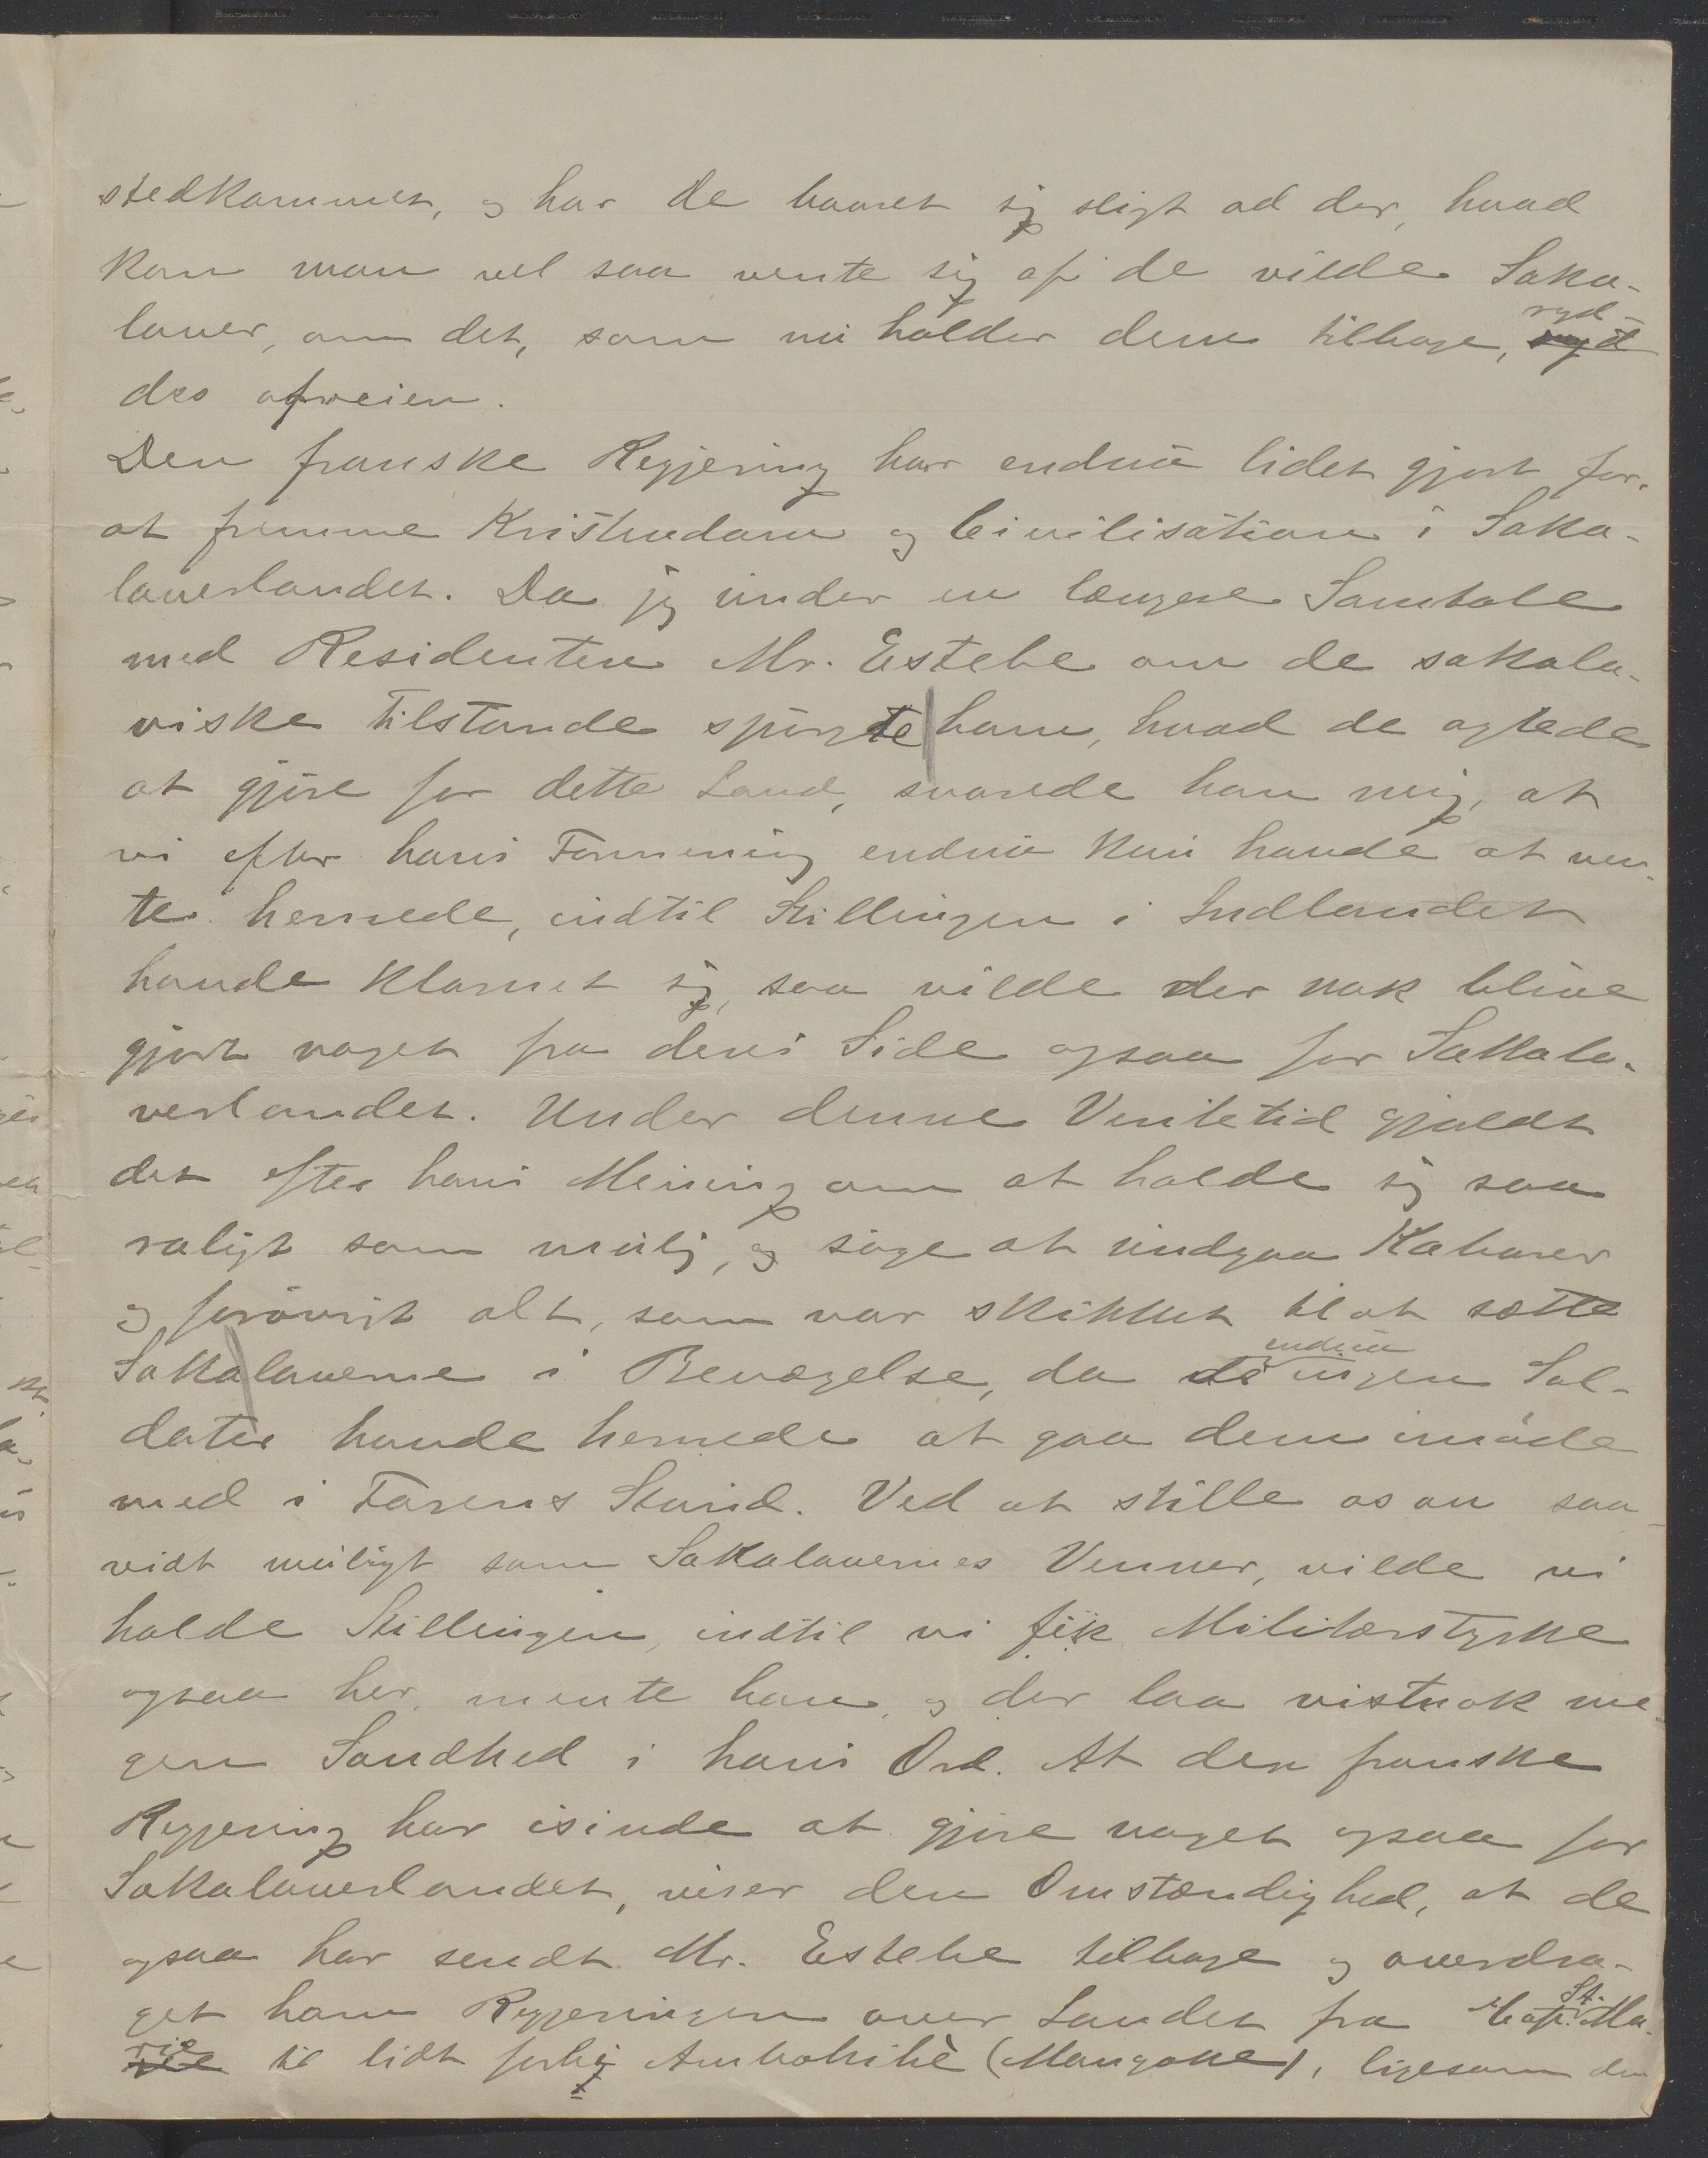 stedkommet, og har de baaret sig sligt ad der, hvad
kan man vel saa vente sig af de vilde Saka-
laver, om det, som nu holder dem tilbage, ryd-
des afveien.
Den franske Regjering har endnu lidet gjort for
at fremme Kristendom og Civilisation i Saka-
laverlandet. Da jeg under en længere Samtale
med Residenten Mr. Estebe om de sakala-
viske Tilstande spurgte ham, hvad de agtede
at gjøre for dette Land, svarede han mig, at
vi efter hans Formening endnu kun havde at ven-
te hernede, indtil Stillingen i Indlandet
havde klarnet sig, saa vilde der nok blive
gjort noget fra deres Side ogsaa for Sakala-
verlandet. Under denne Ventetid gjaldt
det efter hans Mening om at holde sig saa
roligt som mulig, og søge at undgaa Kabarer
og forøvrigt alt, som var skikket til at sætte
Sakalaverne i Bevægelse, da de endnu ingen Sol-
dater havde hernede at gaa dem imøde
med i Farens Stund. Ved at stille os an saa-
vidt muligt som Sakalavernes Venner, vilde vi
holde Stillingen, indtil vi fik Militærstyrke
ogsaa her, mente han, og der laa vistnok me-
gen Sandhed i hans Ord. At den franske
Regjering har isinde at gjøre noget ogsaa for
Sakalaverlandet, viser den Omstændighed, at de
ogsaa har sendt Mr. Estebe tilbage og overdra-
get ham Regjeringen over Landet fra Cap. St. Ma-
rie til lidt forbi Ambohibé (Mangoke), ligesom den